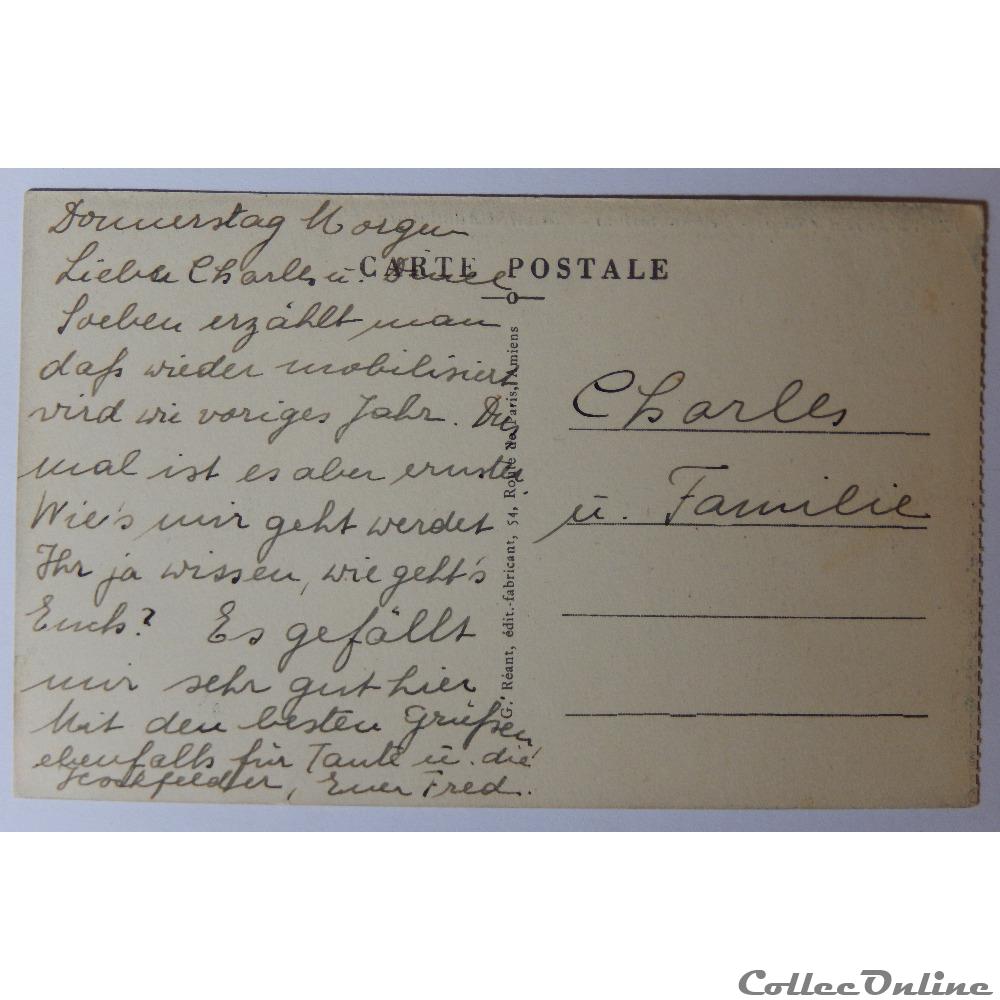 Donnerstag Morgen
Liebe Charles u.
CARTE POSTALE
Soeben erzählt man
daß wieder mobilisiert
wird wie voriges Jahr. Dies
mal ist es aber ernster
Wie's mir geht werdet
Ihr ja wissen, wie geht's
Euch? Es gefällt
mir sehr gut hier
Mit den besten Grüßen
ebenfalls für Tante u. die
Euer Fred.
G. Réant, édit.-fabricant, 54, Route de Paris, Amiens
Charles
u. Familie
CollecOnline